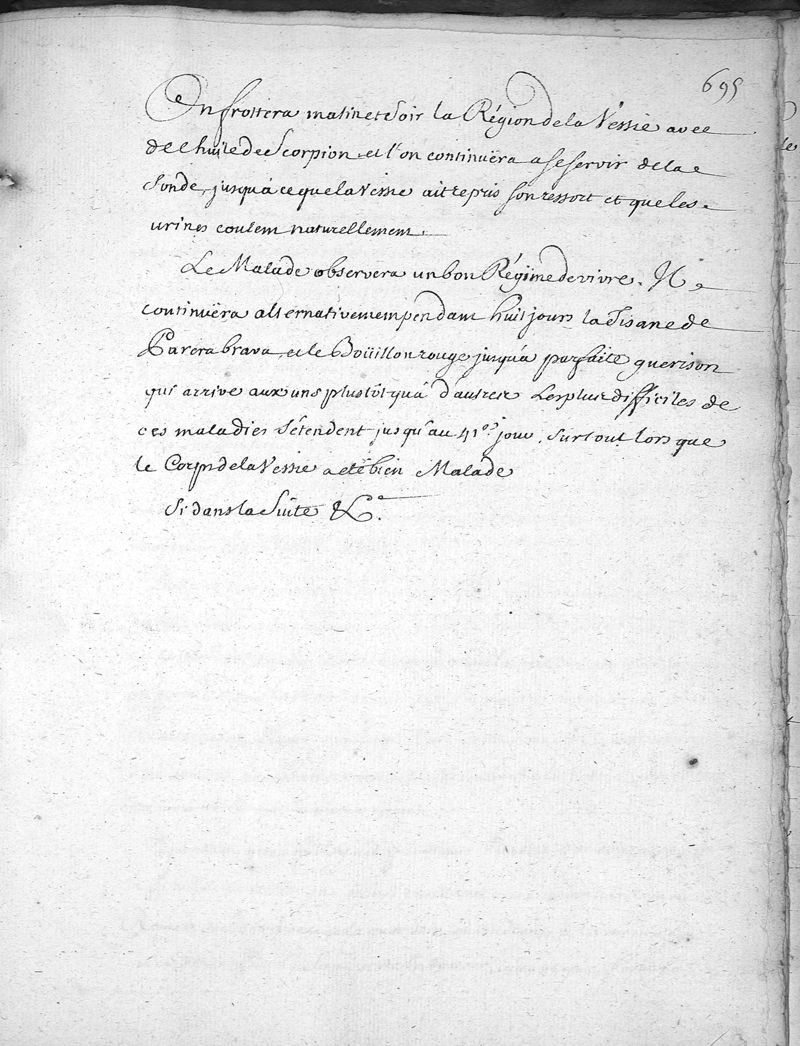 695
On frottera matin et Soir la Région de la Vessie avec
de l'huile de Scorpion et l'on continuëra a se servir de la
Sonde, jusqu'a ce que la Vessie ait repris son ressort et que les
urines coulent naturellement.
Le Malade observera un bon Régime de vivre. Il
continuëra alternativement pendant huit jours la Tisane de
Parera brava, et le Boüillon rouge jusqu'a parfaite guerison
qui arrive aux uns plustôt qu'a d'autres. Les plus difficiles de
ces maladies s'étendent jusqu'au 41.e jour, surtout lors que
le Corps de la Vessie a eté bien Malade
Si dans la Suite &c.a